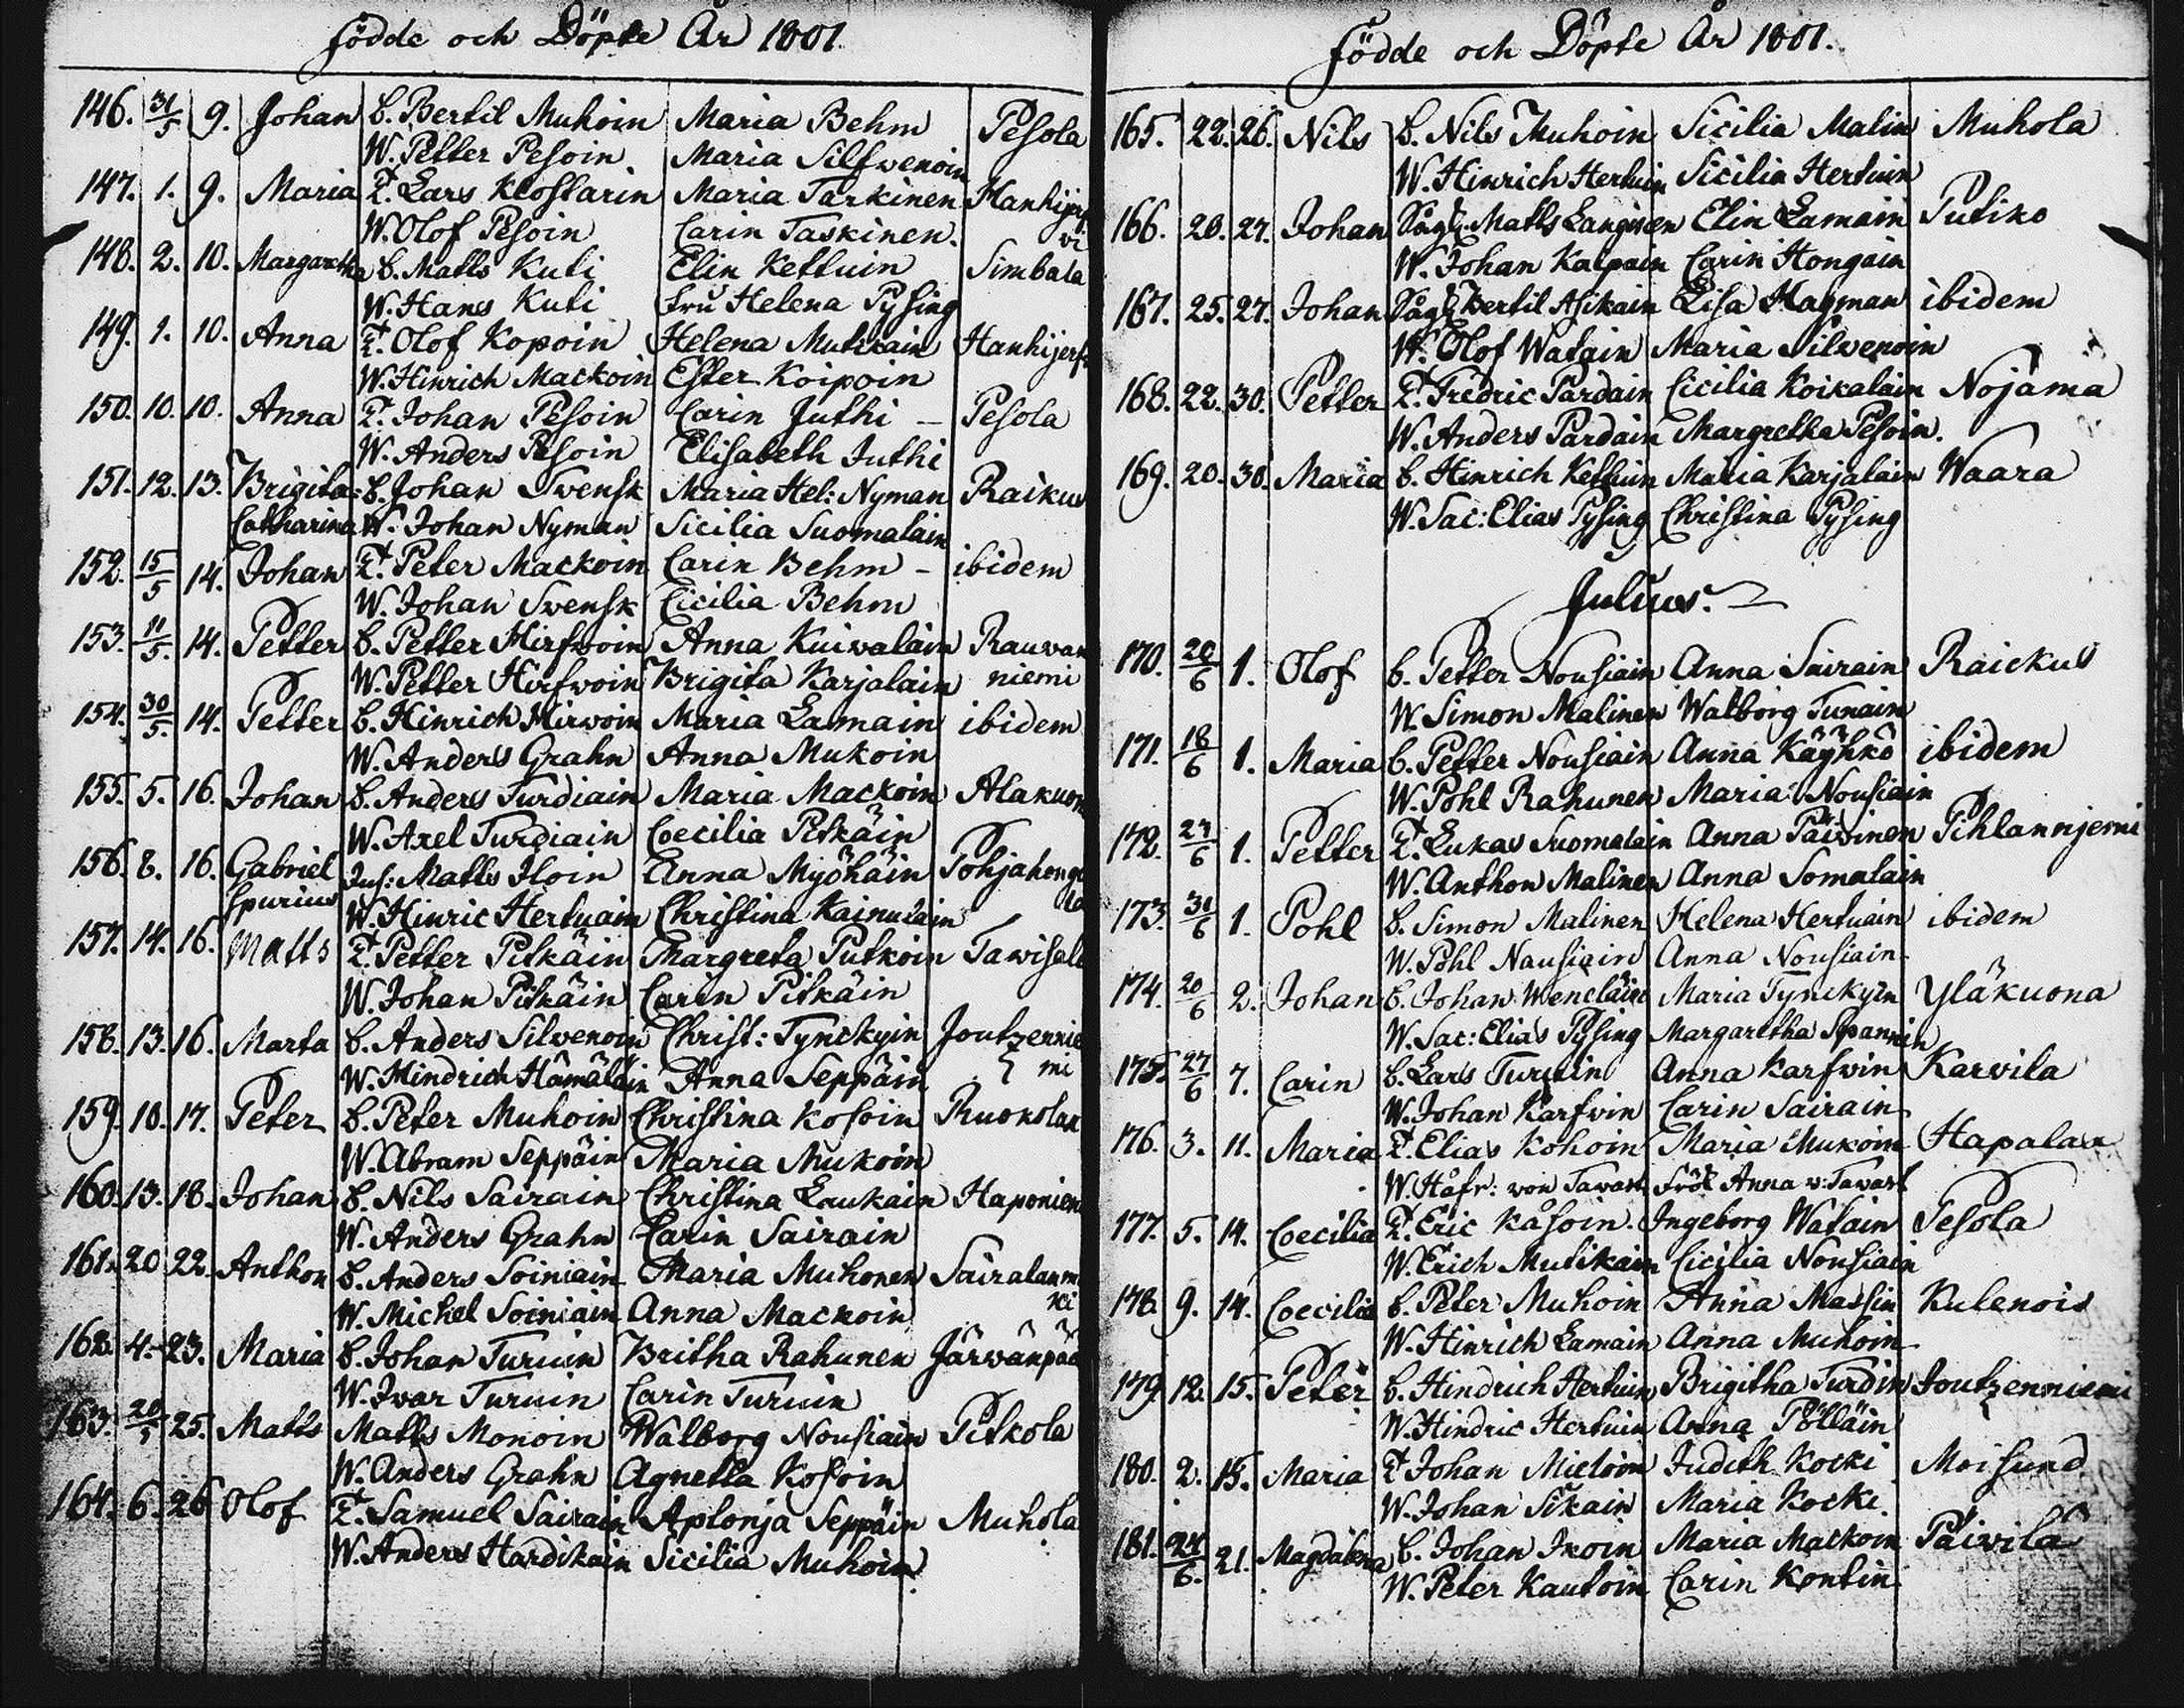 födde och Döpte År 1801.
146. 31/5 9. Johan b. Bertil Muhoin Maria Behm Pesola
W. Petter Pesoin Maria Silfwenoin
147. 1. 9. Maria T. Lars Klostarin Maria Tarkinen Hanhijerf
W. Olof Pesoin Carin Taskinen. vi
148. 2. 10. Margaretha b. Matts Kuti Elin Kettuin Simbala
W. Hans Kuti Fru Helena Pysing
149. 1. 10. Anna T. Olof Kopoin Helena Mutikain Hanhijerf
W. Hinrich Mackoin Ester Koipoin
150. 10. 10. Anna T. Johan Pesoin Carin Juthi – Pesola
W. Anders Pesoin Elisabeth Juthi
151. 12. 13. Brigita= b. Johan Swensk Maria Hel: Nyman Raikus
Catharina W. Johan Nyman Sicilia Suomalain
152. 15/5 14. Johan T. Peter Mackoin Carin Behm – ibidem
W. Johan Swensk Cicilia Behm
153. 11/5. 14. Petter b. Petter Hirfwoin Anna Kuiwalain Rauwan
W. Petter Hirfwoin Brigita Karjalain niemi
154. 30/5. 14. Petter b. Hinrich Hirwoin Maria Lamain ibidem
W. Anders Grahn Anna Mukoin
155. 5. 16. Johan b. Anders Turdiain Maria Mackoin Alakuon
W. Axel Turdiain Coecilia Pitkäin
156. 8. 16. Gabriel Inh: Matts Iloin Anna Myöhäin Pohjahong
Spurius W. Hinric Hertuain Christina Kainulain la
157. 14. 16. Matts T. Petter Pitkäin Margreta Putkoin Tawisal
W. Johan Pitkäin Carin Pitkäin
158. 13. 16. Marta b. Anders Silwenoin Christ: Tynckyin Joutzennie
W. Hindrich Hämäläin Anna Seppäin mi
159. 10. 17. Peter b. Peter Muhoin Christina Kosoin Ruokolax
W. Abram Seppäin Maria Mukoin
160. 13. 18. Johan b. Nils Sairain Christina Laukain Haponiem
W. Anders Grahn Carin Sairain
161. 20 22. Anthon b. Anders Soiniain Maria Muhonen Sairalanm
W. Michel Soiniain Anna Mackoin ki
162. 4. 23. Maria b. Johan Turuin Britha Rahunen Järwänpää
W. Ivar Turuin Carin Turuin
163. 20/5 25. Matts Matts Monoin Walborg Nousiain Pitkola
W. Anders Grahn Agnetta Kosoin
164. 6. 26 Olof T. Samuel Sairain Aplonja Seppäin Muhola
W. Anders Hardikain Sicilia Muhoin
födde och Döpte År 1801.
165. 22. 26. Nils b. Nils Muhoin Sicilia Malin Muhola
W. Hinrich Hertuin Sicilia Hertuin
166. 20. 27. Johan Matts Languinen Elin Lamain Putiko
W. Johan Kalpain Carin Hongain
167. 25. 27. Johan Bertil Asikain Lisa Hagman ibidem
W. Olof Watain Maria Silwenoin
168. 22. 30. Petter T. Fredric Pardain Cicilia Koikalain Nojama
W. Anders Pardain Margretha Pesoin.
169. 20. 30. Maria b. Hinrich Kettuin Maria Karjalain Waara
W. Sac: Elias Pysing Christina Pysing
Julius.
170. 20/6 1. Olof b. Petter Nousiain Anna Sairain Raickus
W. Simon Malinen Walborg Tunain
171. 18/6 1. Maria b. Petter Nousiain Anna Käyhkö ibidem
W. Pohl Rahunen Maria Nousiain
172. 27/6 1. Petter T. Lukas Suomalain Anna Päiwinen Pihlannjemi
W. Anthon Malinen Anna Somalain
173. 31/6 1. Pohl b. Simon Malinen Helena Hertuain ibidem
W. Pohl Nausiain Anna Nousiain
174. 20/6 2. Johan b. Johan Wenäläin Maria Tynckyin Yläkuona
W. Sac: Elias Pysing Margaretha Spannin
175. 27/6 7. Carin b. Lars Turuin Anna Karfwin Karvila
W. Johan Karfvin Carin Sairain
176. 3. 11. Maria T. Elias Kohoin Maria Mukoin Hapalax
W. Håfr: von Tawast Frök Anna v: Tawast
177. 5. 14. Coecilia T. Eric Kåsoin. Ingeborg Watain Pesola
W. Erich Mutikain Cicilia Nousiain
178. 9. 14. Coecilia b. Peter Muhoin Anna Massin Kulenois
W. Hinrich Lamain Anna Muhoin
179. 12. 15. Peter b. Hindrich Hertuin Brigitha Turdin Joutzenniemi
W. Hindric Hertuin Anna Pölläin
180. 2. 15. Maria T Johan Mieloin Judith Kocki Moisund
W. Johan Sikain Maria Kocki
181. 24/6. 21. Magdalena b. Johan Ikoin Maria Mackoin Päiwilä
W. Peter Kautoin Carin Kontin